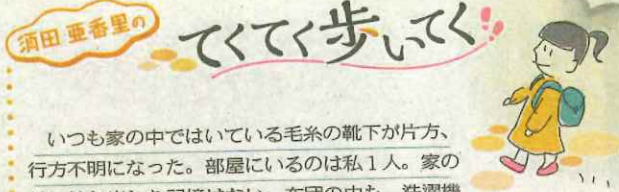 須田亜香里の
てくてく歩いてく!!
いつも家の中ではいている毛糸の靴下が片方、
行方不明になった。部屋にいるのは私1人。家の